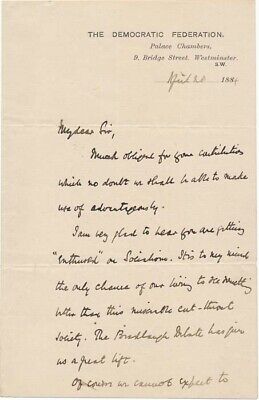 THE DEMOCRATIC FEDERATION.
Palace Chambers,
9. Bridge Street. Westminster.
S.W.
April 20 1884
My dear Sir,
Much obliged for your contribution
which no doubt we shall be able to make
use of advantageously.
I am very glad to hear you are getting
"enthused" on Socialism. It is to my mind
the only chance of our living to see anything
better than this miserable cut-throat
society. The Bradlaugh Debate has given
us a great lift.
Of course we cannot expect to